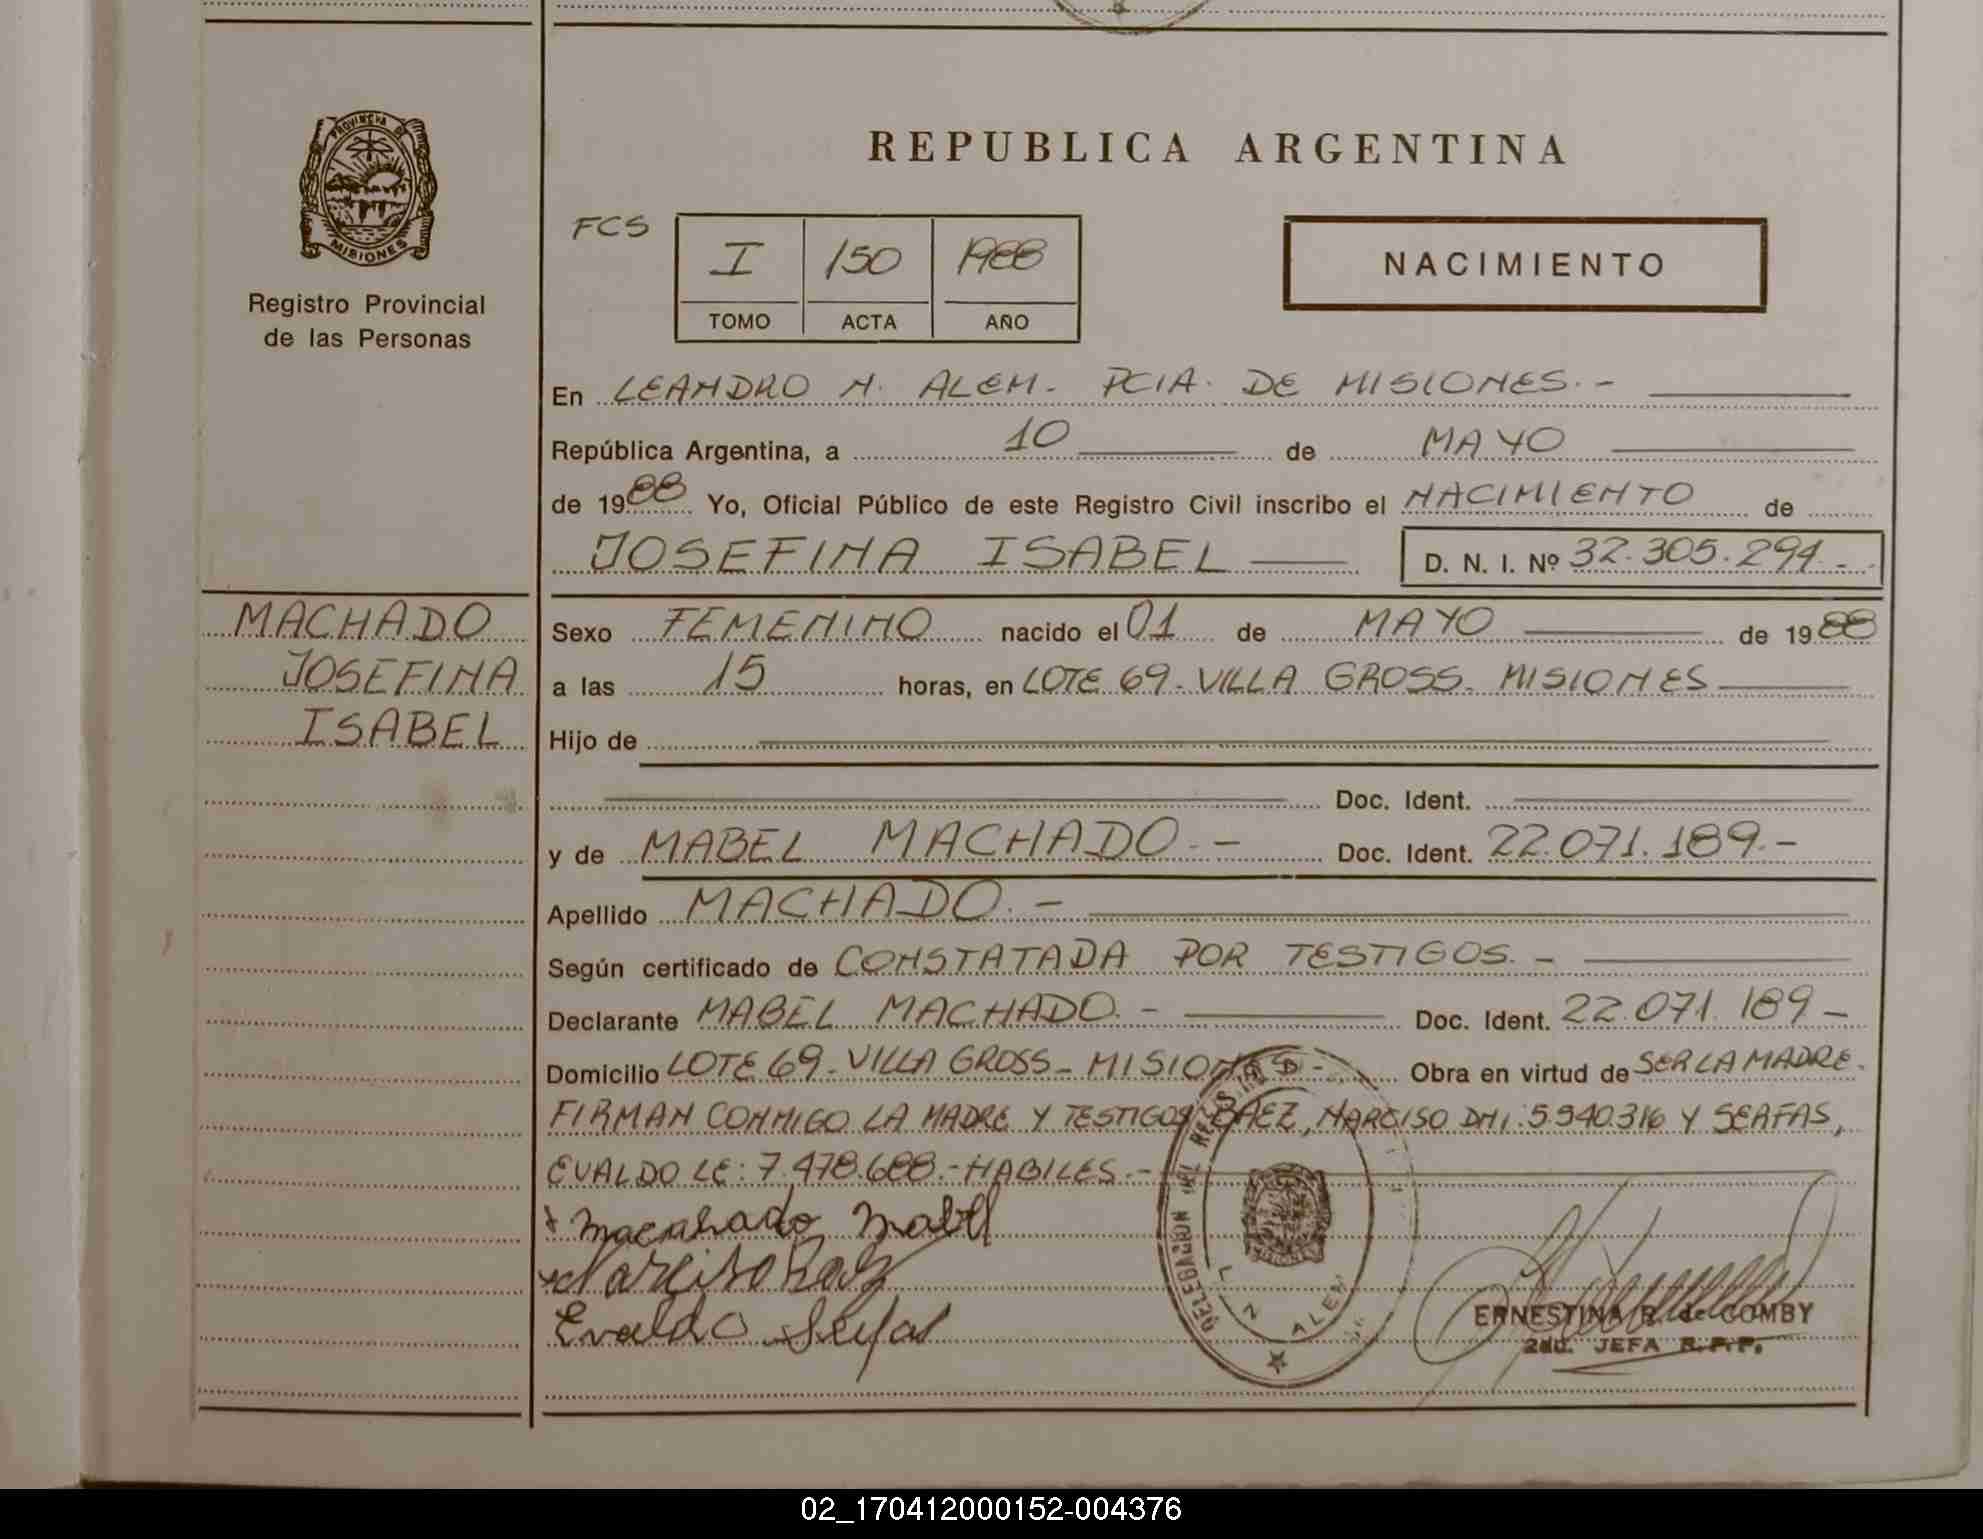 PROVINCIA DE
MISIONES
Registro Provincial
de las Personas
REPUBLICA ARGENTINA
FCS
I 150 1988
TOMO ACTA AÑO
NACIMIENTO
En LEANDRO N. ALEM - PCIA. DE MISIONES. -
República Argentina, a 10 de MAYO
de 1988 Yo, Oficial Público de este Registro Civil inscribo el NACIMIENTO de
JOSEFINA ISABEL D. N. I. Nº 32.305.294.-
MACHADO
JOSEFINA
ISABEL
Sexo FEMENINO nacido el 01 de MAYO de 1988
a las 15 horas, en LOTE 69 - VILLA GROSS - MISIONES
Hijo de
Doc. Ident.
y de MABEL MACHADO. - Doc. Ident. 22.071.189.-
Apellido MACHADO. -
Según certificado de CONSTATADA POR TESTIGOS. -
Declarante MABEL MACHADO. - Doc. Ident. 22.071.189 -
Domicilio LOTE 69 - VILLA GROSS - MISIONES - Obra en virtud de SER LA MADRE.
FIRMAN CONMIGO LA MADRE Y TESTIGOS BAEZ, NARCISO DNI: 5.940.316 Y SEAFAS,
EVALDO LE: 7.478.688.- HABILES. -
x Macahado Mabel
Narciso Baez
Evaldo Seafas
DELEGACION DEL REGISTRO
L N ALEM
ERNESTINA R. de COMBY
2da. JEFA R.P.P.
02_170412000152-004376